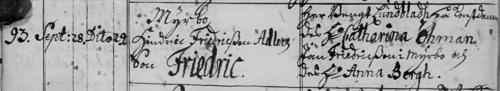 93. Sept: 28. Dito 29
Myrbo
Hindric Fridrichson Adlers
Son Friedric.
Bengt Lundbladh
des H. Catharina Öhman.
Jan Fridrichson i Myrbo och
des H. Anna Bergh.